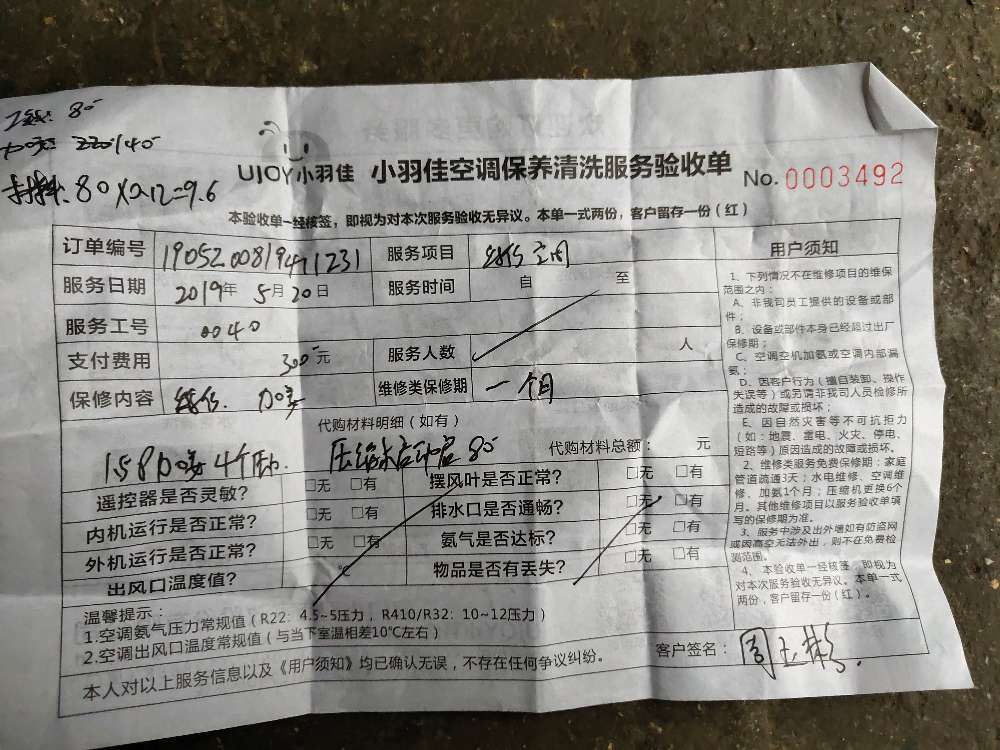 工钱: 80
加氟: 220/40
80X0.12=9.6
UJOY小羽佳 小羽佳空调保养清洗服务验收单 No. 0003492
本验收单一经核签，即视为对本次服务验收无异议。本单一式两份，客户留存一份（红）
订单编号 1905200819471231 服务项目 维修空调
服务日期 2019年 5月20日 服务时间 自 至
服务工号 0040
支付费用 300元 服务人数 人
保修内容 维修. 加氟 维修类保修期 一个月
代购材料明细（如有）
15P加氟4个 压缩机启动器80 代购材料总额： 元
遥控器是否灵敏? □无 □有 摆风叶是否正常? □无 □有
内机运行是否正常? □无 □有 排水口是否通畅? □无 □有
外机运行是否正常? □无 □有 氨气是否达标? □无 □有
出风口温度值? ℃ 物品是否有丢失? □无 □有
温馨提示：
1.空调氨气压力常规值（R22：4.5~5压力，R410/R32：10~12压力）
2.空调出风口温度常规值（与当下室温相差10℃左右）
本人对以上服务信息以及《用户须知》均已确认无误，不存在任何争议纠纷。
客户签名：周玉彬
用户须知
1、下列情况不在维修项目的维保
范围之内：
A、非我司员工提供的设备或部
件；
B、设备或部件本身已经超过出厂
保修期；
C、空调空机加氨或空调内部漏
氨；
D、因客户行为（擅自装卸、操作
失误等）或另请非我司人员检修所
造成的故障或损坏；
E、因自然灾害等不可抗拒力
（如：地震、雷电、火灾、停电、
短路等）原因造成的故障或损坏。
2、维修类服务免费保修期：家庭
管道疏通3天；水电维修、空调维
修、加氨1个月；压缩机更换6个
月。其他维修项目以服务验收单填
写的保修期为准。
3、服务中涉及出外墙如有防盗网
或因高空无法外出，则不在免费检
测范围。
4、本验收单一经核签，即视为
对本次服务验收无异议。本单一式
两份，客户留存一份（红）。